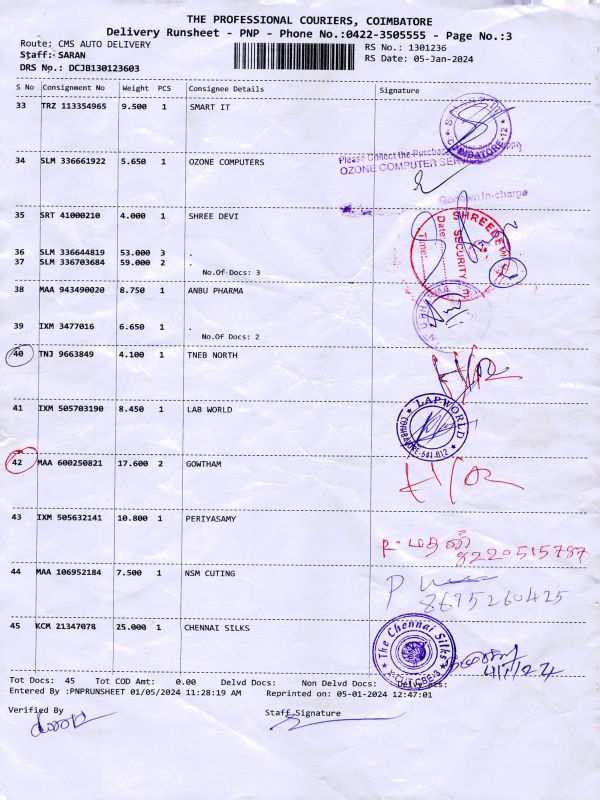 THE PROFESSIONAL COURIERS, COIMBATORE
Delivery Runsheet - PNP - Phone No.:0422-3505555 - Page No.:3
Route: CMS AUTO DELIVERY RS No.: 1301236
Staff: SARAN RS Date: 05-Jan-2024
DRS No.: DCJB130123603
S No Consignment No Weight PCS Consignee Details Signature
33 TRZ 113354965 9.500 1 SMART IT
COIMBATORE-12
34 SLM 336661922 5.650 1 OZONE COMPUTERS
Please Collect the Purchase
OZONE COMPUTER
Godown In-charge
35 SRT 41000210 4.000 1 SHREE DEVI
SHREEDEVI
SECURITY
Date:
Time:
36 SLM 336644819 53.000 3 .
37 SLM 336703684 59.000 2 .
No.Of Docs: 3
38 MAA 943490020 8.750 1 ANBU PHARMA
39 IXM 3477016 6.650 1 .
No.Of Docs: 2
40 TNJ 9663849 4.100 1 TNEB NORTH
41 IXM 505703190 8.450 1 LAB WORLD
LAPWORLD
COIMBATORE-641 012
42 MAA 600250821 17.600 2 GOWTHAM
43 IXM 505632141 10.800 1 PERIYASAMY
8220515787
44 MAA 106952184 7.500 1 NSM CUTING
8695260425
45 KCM 21347078 25.000 1 CHENNAI SILKS
The Chennai Silks
4/1/24
Tot Docs: 45 Tot COD Amt: 0.00 Delvd Docs: Non Delvd Docs:
Entered By :PNPRUNSHEET 01/05/2024 11:28:19 AM Reprinted on: 05-01-2024 12:47:01
Verified By Staff Signature